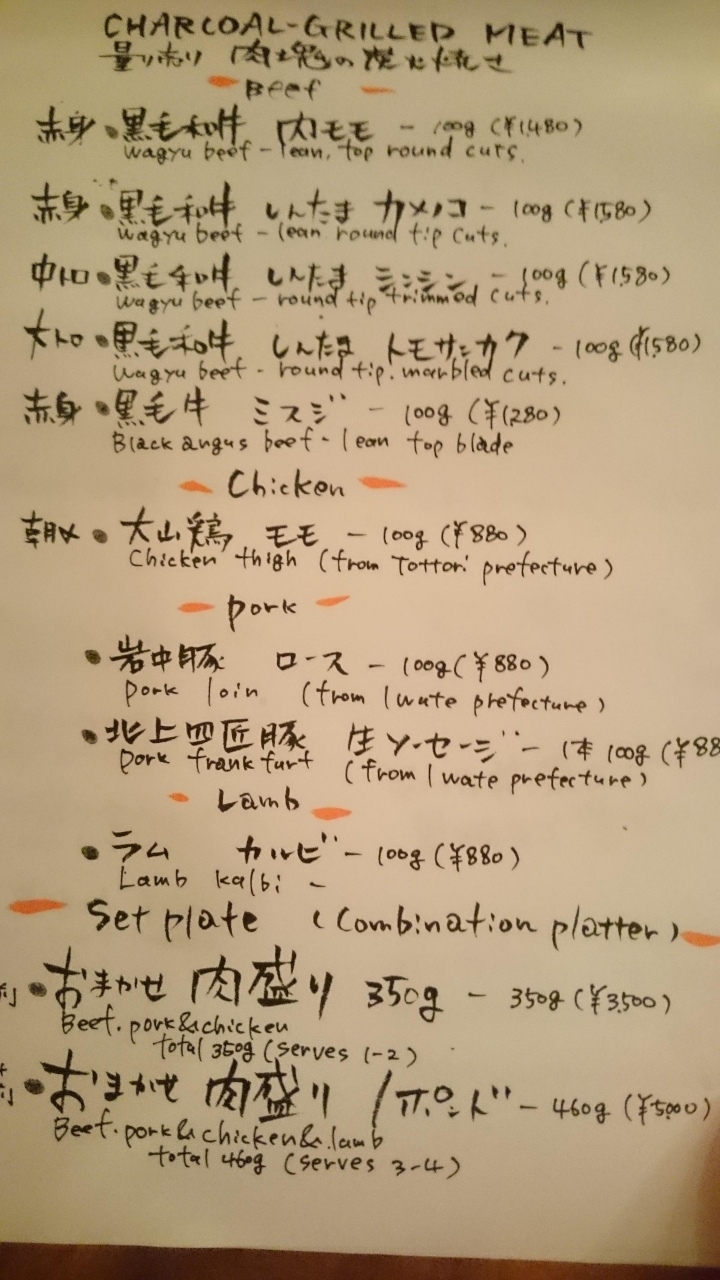 CHARCOAL-GRILLED MEAT
量り売り 肉と鶏の炭火焼き
Beef
赤身 ・黒毛和牛 内モモ - 100g (¥1,480)
wagyu beef - lean, top round cuts.
赤身 ・黒毛和牛 しんたま カメノコ - 100g (¥1,580)
wagyu beef - lean round tip cuts.
中トロ ・黒毛和牛 しんたま シンシン - 100g (¥1,580)
wagyu beef - round tip trimmed cuts.
大トロ ・黒毛和牛 しんたま トモサンカク - 100g (¥1,580)
wagyu beef - round tip. marbled cuts.
赤身 ・黒毛牛 ミスジ - 100g (¥1,280)
Black angus beef - lean top blade
Chicken
朝〆 ・大山鶏 モモ - 100g (¥880)
Chicken thigh (from Tottori prefecture)
pork
・岩中豚 ロース - 100g (¥880)
pork loin (from Iwate prefecture)
・北上四匠豚 生ソーセージ - 1本 100g (¥88
pork frankfurt (from Iwate prefecture)
Lamb
・ラム カルビ - 100g (¥880)
Lamb kalbi -
Set plate (Combination platter)
・おまかせ 肉盛り 350g - 350g (¥3,500)
Beef. pork & chicken
total 350g (serves 1-2)
・おまかせ 肉盛り 1ポンド - 460g (¥5,000)
Beef. pork & chicken & lamb
total 460g (serves 3-4)